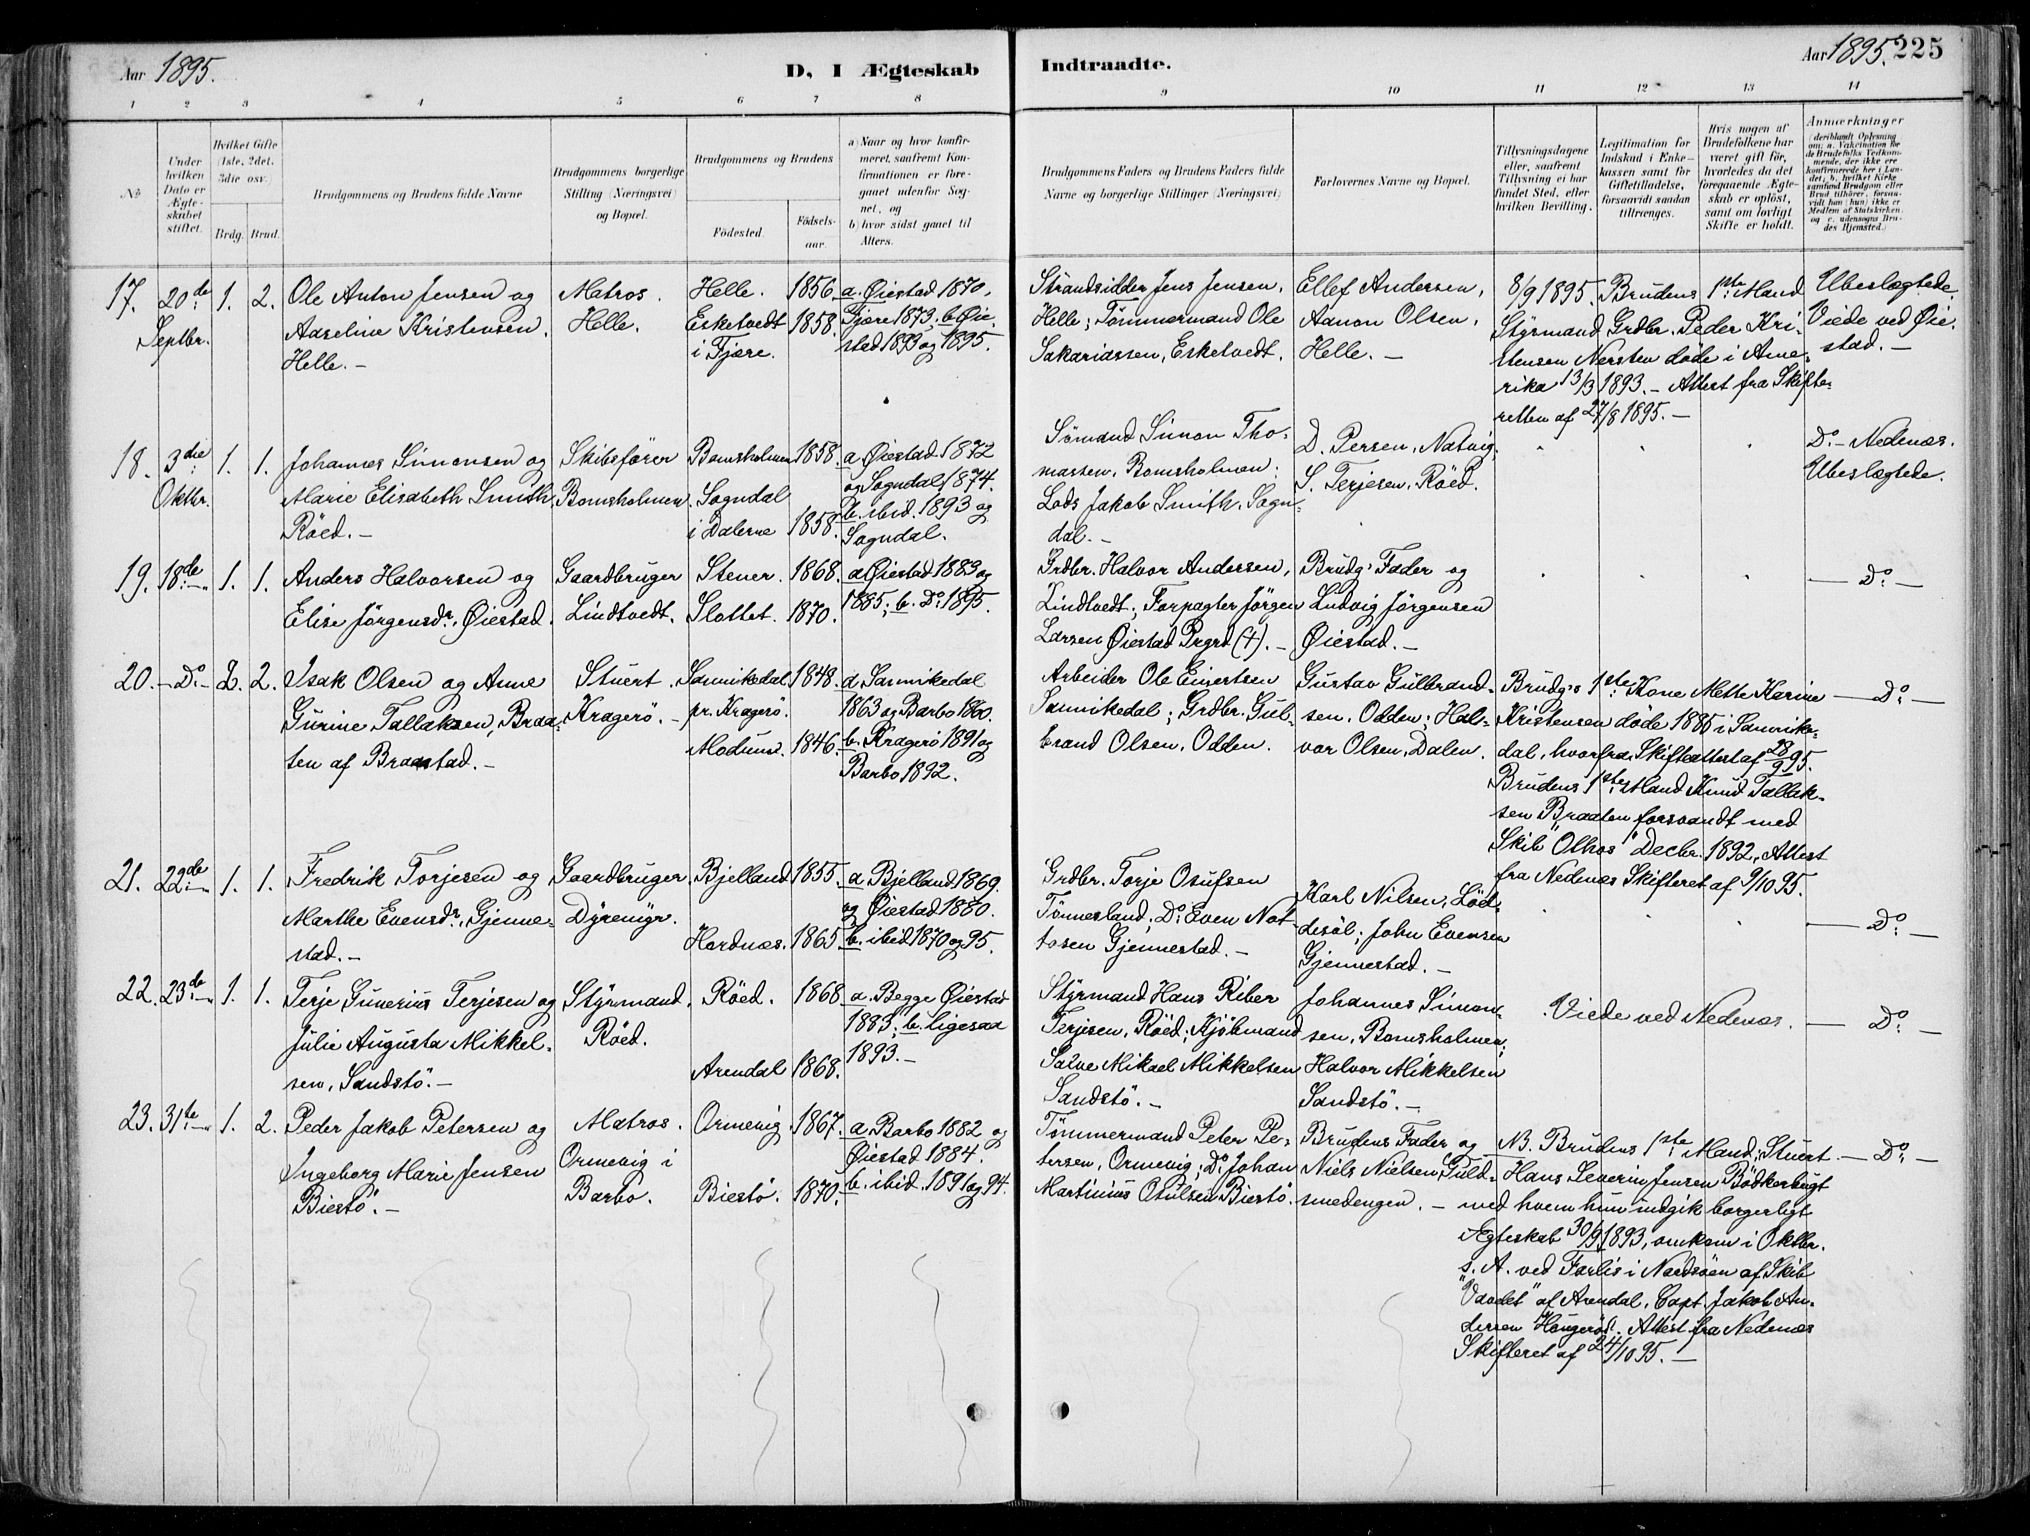 Aar 1895.
D, I Ægteskab Indtraadte.
Aar 1895. 225
1 2 3 4 5 6 7 8 9 10 11 12 13 14
No
Under hvilken Dato er Ægteskabet stiftet.
Hvilket Gifte (1ste, 2det, 3die osv.)
Brdg. Brud.
Brudgommens og Brudens fulde Navne
Brudgommens borgerlige Stilling (Næringsvei) og Bopæl.
Brudgommens og Brudens
Födested. Födselsaar.
a) Naar og hvor konfirmeret, saafremt Konfirmationen er foregaaet udenfor Sognet, og
b) hvor sidst gaaet til Alters.
Brudgommens Faders og Brudens Faders fulde Navne og borgerlige Stillinger (Næringsvei)
Forlovernes Navne og Bopæl.
Tillysningsdagene eller, saafremt Tillysning ei har fundet Sted, efter hvilken Bevilling.
Legitimation for Indskud i Enkekassen samt for Giftetilladelse, forsaavidt saadan tiltrænges.
Hvis nogen af Brudefolkene har været gift för, hvorledes da det foregaaende Ægteskab er oplöst, samt om lovligt Skifte er holdt.
Anmærkninger (deriblandt Oplysning om: a. Vakcination for de Brudefolks Vedkommende, der ikke ere konfirmerede her i Landet; b. hvilket Kirkesamfund Brudgom eller Brud tilhörer, forsaavidt han (hun) ikke er Medlem af Statskirken, og c. udensogns Brudes Hjemsted.)
17. 20de Septbr. 1. 2.
Ole Anton Jensen og
Aaseline Kristensen.
Helle. –
Matros.
Helle.
Helle. 1856.
Esketvedt 1858.
i Fjære.
a. Øiestad 1870,
Fjære 1873; b. Øie-
stad 1893 og 1895.
Strandsidder Jens Jensen,
Helle; Tømmermand Ole
Sakariassen, Esketvedt.
Ellef Andersen,
Aanon Olsen,
Helle. –
8/9 1895. Brudens 1ste Mand
Styrmand Grdbr. Peder Kri-
stensen Nersten döde i Ame-
rika 13/3 1893. – Attest fra Skifte-
retten af 27/8 1895. –
Ubeslægtede.
Viede ved Øie-
stad. –
18. 3die Oktbr. 1. 1.
Johannes Simonsen og
Marie Elisabeth Smith,
Röed. –
Skibsfører
Bomsholmen.
Bomsholmen 1858.
Sogndal
i Dalerne 1858.
a. Øiestad 1872
og Sogndal 1874.
b. ibid. 1893 og
Sogndal.
Sømand Simon Tho-
massen, Bomsholmen;
Lods Jakob Smith, Sogn-
dal. –
D. Persen, Natvig,
S. Terjesen, Röed.
Do – Nedenæs.
Ubeslægtede.
19. 18de – 1. 1.
Anders Halvorsen og
Elise Jörgensdr., Øiestad.
Gaardbruger
Lindtvedt.
Stener. 1868.
Slottet. 1870.
a. Øiestad 1883 og
1885; b. Do 1895.
Grdbr. Halvor Andersen,
Lindtvedt; Forpagter Jörgen
Larsen Øiestad Prgrd (†). –
Brudg's Fader og
Ludvig Jörgensen
Øiestad. –
– Do –
20. – Do – 2. 2.
Isak Olsen og Anne
Gurine Tallaksen, Braa-
ten af Braastad. –
Stuert.
Kragerö. –
Sannikedal 1848.
pr. Kragerö.
Modums. 1846.
a. Sannikedal
1863 og Barbo 1860.
b. Kragerö 1891 og
Barbo 1892.
Arbeider Ole Eivertsen
Sannikedal; Grdbr. Gul-
brand Olsen, Odden.
Gustav Gulbrand-
sen, Odden; Hal-
vor Olsen, Dalen.
Brudg's 1ste Kone Mette Karine
Kristensen döde 1885 i Sannike-
dal, hvorfra Skifteattest af 23/9 95.
Brudens 1ste Mand Knud Tallak-
sen Braaten forsvandt med
Skib "Olhos" Decbr. 1892, Attest
fra Nedenæs Skifteret af 9/10 95.
– Do –
21. 22de – 1. 1.
Fredrik Torjesen og
Marthe Evensdr., Gjenne-
stad. –
Gaardbruger
Dyremyr.
Bjelland 1855.
Hordnæs. 1865.
a. Bjelland 1869.
og Øiestad 1880.
b. ibid 1870 og 95.
Grdbr. Torje Osufsen
Tönnesland; Do Even Not-
tosen Gjennestad. –
Karl Nilsen, Löd-
desöl; John Evensen
Gjennestad. –
– Do –
22. 23de – 1. 1.
Terje Gunerius Terjesen og
Julie Augusta Mikkel-
sen, Sandstö. –
Styrmand.
Röed.
Röed. 1868.
Arendal 1868.
a. Begge Øiestad
1883; b. ligesaa
1893. –
Styrmand Hans Riber
Terjesen, Röed; Kjöbmand
Salve Mikael Mikkelsen
Sandstö. –
Johannes Simon-
sen, Bomsholmen;
Halvor Mikkelsen
Sandstö. –
Viede ved Nedenæs. – Do –
23. 31te – 1. 2.
Peder Jakob Petersen og
Ingeborg Marie Jensen
Biestö. –
Matros.
Ormevig i
Barbo.
Ormevig 1867.
Biestö. 1870.
a. Barbo 1882 og
Øiestad 1884.
b. ibid. 1891 og 94.
Tömmermand Peter Pe-
tersen, Ormevig; Do Johan
Martinius Osulsen Biestö.
Brudens Fader og
Niels Nielsen, Guld-
smedengen. –
NB. Brudens 1ste Mand, Stuert
Hans Severin Jensen Bödkerbugt
med hvem hun indgik borgerligt
Ægteskab 30/9 1893, omkom i Oktbr.
s. A. ved Forlis i Nordsöen af Skib
"Vaadet" af Arendal, Capt. Jakob An-
dersen Hougeröd. Attest fra Nedenæs
Skifteret af 24/10 95. –
– Do –